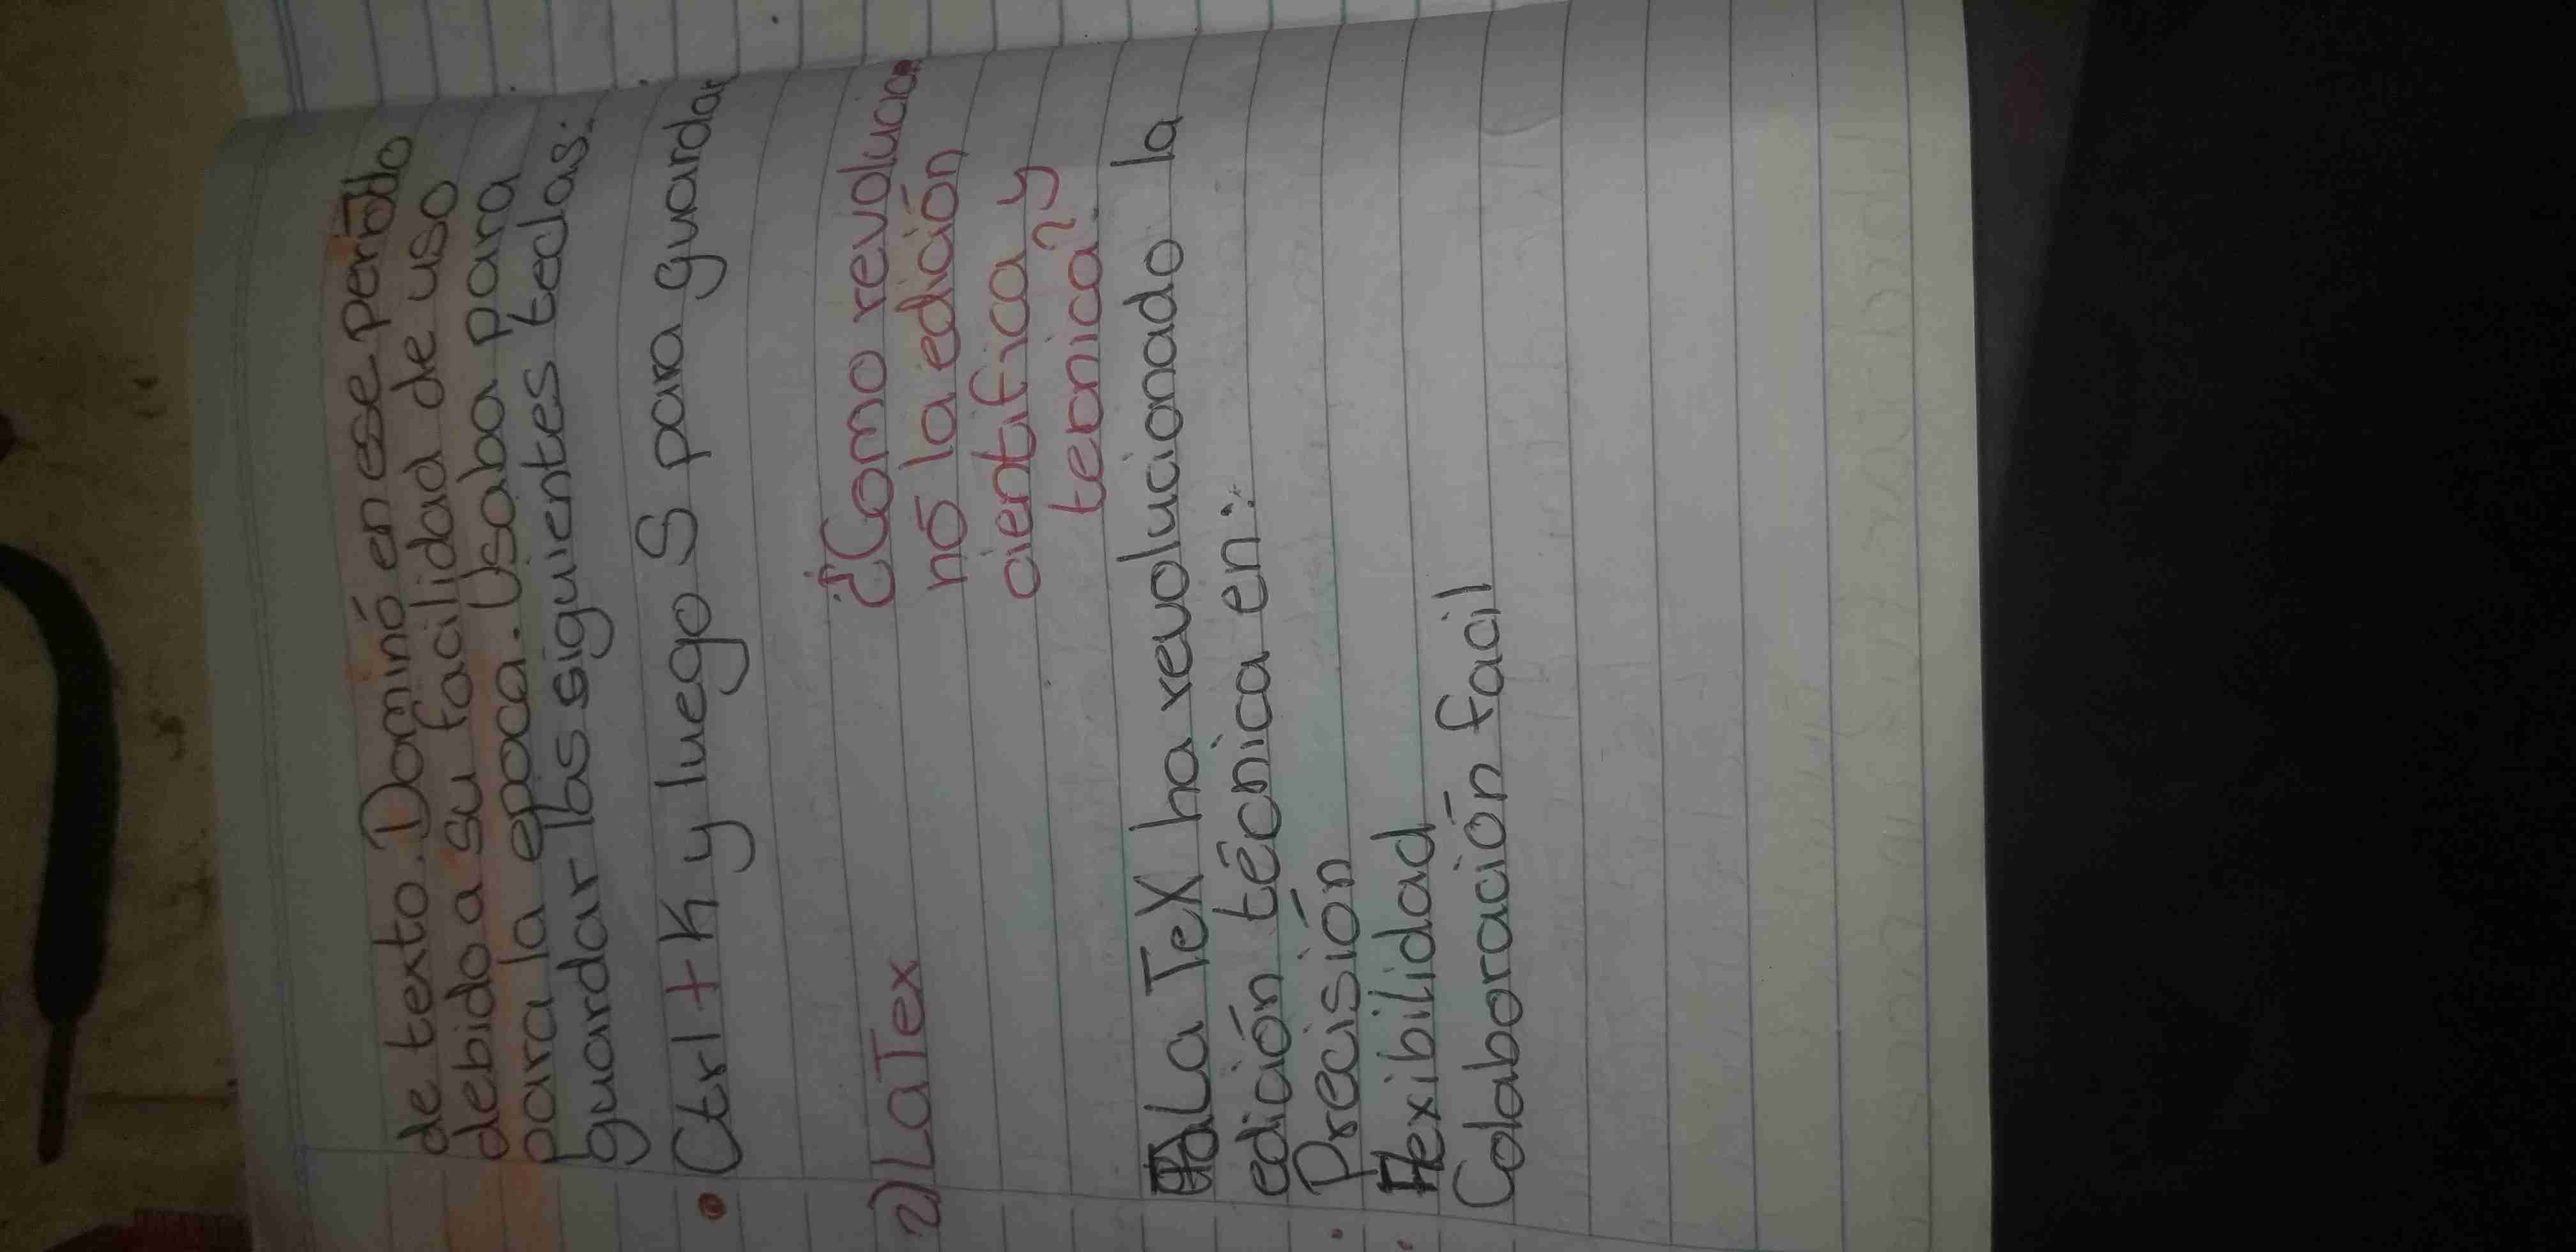 de texto. Dominó en ese periodo
debido a su facilidad de uso
para la epoca. Usaba para
guardar las siguientes teclas:
• Ctrl + K y luego S para guardar
2) LaTex ¿Como revolucio
nó la edición
cientifica y
tecnica?
La TeX ha revolucionado la
edición técnica en:
• Precisión
• Flexibilidad
Colaboración facil